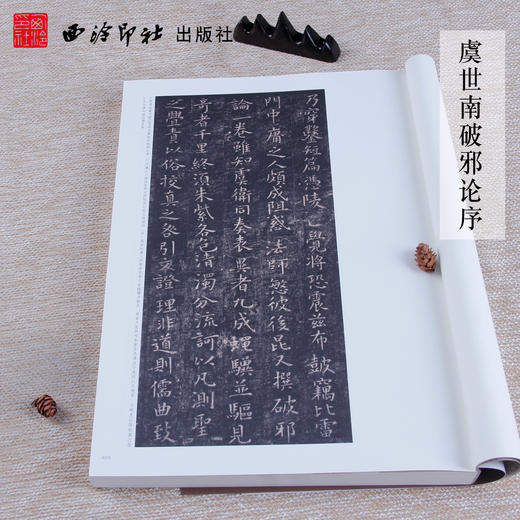 西泠印社
西泠印社 出版社
虞世南破邪论序
乃穿鑿短篇憑陵正覺將恐震兹布鼓竊比雷
門中庸之人頗成阻惑法師愍彼後昆又撰破邪
論一卷雖知虞衛同奏表異者九成蠅驥並驅見
奇者千里終須朱紫各色清濁分流訶以凡測聖
之舋責以俗校真之咎引文證理非道則儒曲致